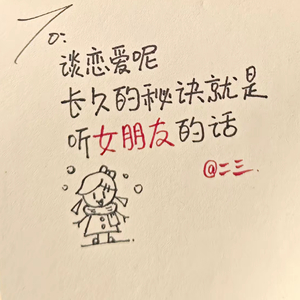 To:
谈恋爱呢
长久的秘诀就是
听女朋友的话
@二三.